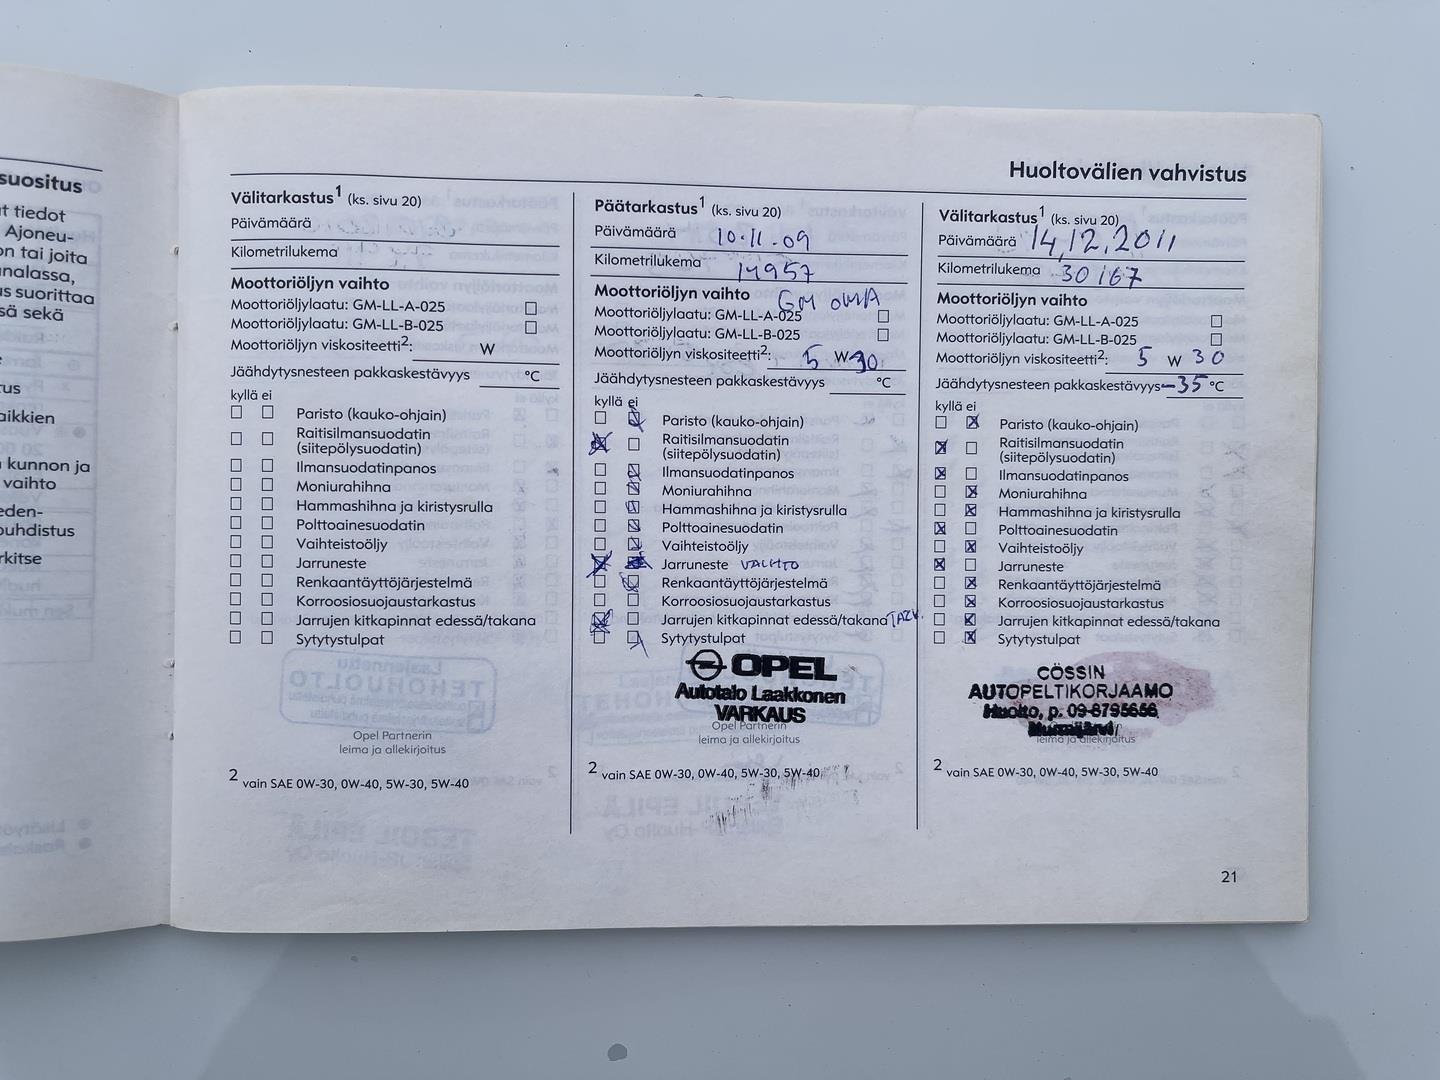 suositus
t tiedot
Ajoneu-
on tai joita
nalassa,
us suorittaa
sä sekä
tus
aikkien
kunnon ja
vaihto
eden-
puhdistus
rkitse
Huoltovälien vahvistus
Välitarkastus1 (ks. sivu 20)
Päivämäärä
Kilometrilukema
Moottoriöljyn vaihto
Moottoriöljylaatu: GM-LL-A-025
Moottoriöljylaatu: GM-LL-B-025
Moottoriöljyn viskositeetti2: W
Jäähdytysnesteen pakkaskestävyys °C
kyllä ei
Paristo (kauko-ohjain)
Raitisilmansuodatin
(siitepölysuodatin)
Ilmansuodatinpanos
Moniurahihna
Hammashihna ja kiristysrulla
Polttoainesuodatin
Vaihteistoöljy
Jarruneste
Renkaantäyttöjärjestelmä
Korroosiosuojaustarkastus
Jarrujen kitkapinnat edessä/takana
Sytytystulpat
Opel Partnerin
leima ja allekirjoitus
2 vain SAE 0W-30, 0W-40, 5W-30, 5W-40
Päätarkastus1 (ks. sivu 20)
Päivämäärä 10.11.09
Kilometrilukema 14957
Moottoriöljyn vaihto GM OMA
Moottoriöljylaatu: GM-LL-A-025
Moottoriöljylaatu: GM-LL-B-025
Moottoriöljyn viskositeetti2: 5 W 30
Jäähdytysnesteen pakkaskestävyys °C
kyllä ei
Paristo (kauko-ohjain)
Raitisilmansuodatin
(siitepölysuodatin)
Ilmansuodatinpanos
Moniurahihna
Hammashihna ja kiristysrulla
Polttoainesuodatin
Vaihteistoöljy
Jarruneste VAIHTO
Renkaantäyttöjärjestelmä
Korroosiosuojaustarkastus
Jarrujen kitkapinnat edessä/takana TARK.
Sytytystulpat
OPEL
Autotalo Laakkonen
VARKAUS
Opel Partnerin
leima ja allekirjoitus
2 vain SAE 0W-30, 0W-40, 5W-30, 5W-40
Välitarkastus1 (ks. sivu 20)
Päivämäärä 14.12.2011
Kilometrilukema 30167
Moottoriöljyn vaihto
Moottoriöljylaatu: GM-LL-A-025
Moottoriöljylaatu: GM-LL-B-025
Moottoriöljyn viskositeetti2: 5 W 30
Jäähdytysnesteen pakkaskestävyys -35 °C
kyllä ei
Paristo (kauko-ohjain)
Raitisilmansuodatin
(siitepölysuodatin)
Ilmansuodatinpanos
Moniurahihna
Hammashihna ja kiristysrulla
Polttoainesuodatin
Vaihteistoöljy
Jarruneste
Renkaantäyttöjärjestelmä
Korroosiosuojaustarkastus
Jarrujen kitkapinnat edessä/takana
Sytytystulpat
CÖSSIN
AUTOPELTIKORJAAMO
Huolto, p. 09-8795656
Nummijärvi
leima ja allekirjoitus
2 vain SAE 0W-30, 0W-40, 5W-30, 5W-40
21